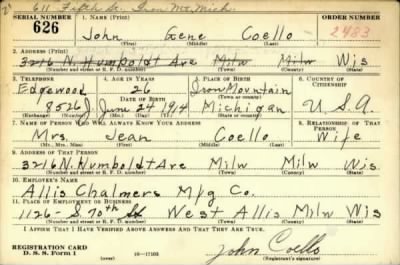 611 Fifth St. Iron Mt. Mich.
SERIAL NUMBER 1. NAME (Print) ORDER NUMBER
626 John Gene Coello 2483
(First) (Middle) (Last)
2. ADDRESS (Print)
3216 N. Humboldt Ave Milw Milw Wis
(Number and street or R. F. D. number) (Town) (County) (State)
3. TELEPHONE 4. AGE IN YEARS 5. PLACE OF BIRTH 6. COUNTRY OF CITIZENSHIP
Edgewood 26 Iron Mountain
DATE OF BIRTH (Town or county)
8526 J June 24 1914 Michigan U.S.A
(Exchange) (Number) (Mo.) (Day) (Yr.) (State or country)
7. NAME OF PERSON WHO WILL ALWAYS KNOW YOUR ADDRESS 8. RELATIONSHIP OF THAT PERSON
Mrs. Jean Coello Wife
(Mr., Mrs., Miss) (First) (Middle) (Last)
9. ADDRESS OF THAT PERSON
3216 N. Humboldt Ave Milw Milw Wis
(Number and street or R. F. D. number) (Town) (County) (State)
10. EMPLOYER'S NAME
Allis Chalmers Mfg Co.
11. PLACE OF EMPLOYMENT OR BUSINESS
1126-S. 70th St West Allis Milw Wis
(Number and street or R. F. D. number) (Town) (County) (State)
I AFFIRM THAT I HAVE VERIFIED ABOVE ANSWERS AND THAT THEY ARE TRUE.
REGISTRATION CARD
D. S. S. Form 1 (over) 16—17105 John Coello